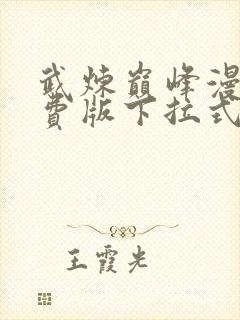 武炼巅峰漫
费版下拉式
王霞光